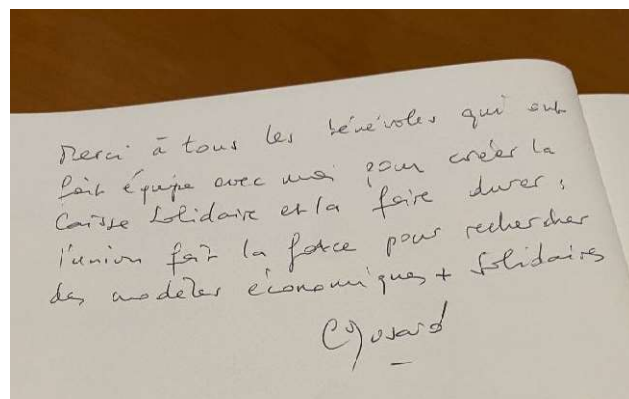 Merci à tous les bénévoles qui ont
fait équipe avec moi pour créer la
Caisse Solidaire et la faire durer :
l'union fait la force pour rechercher
des modèles économiques + solidaires